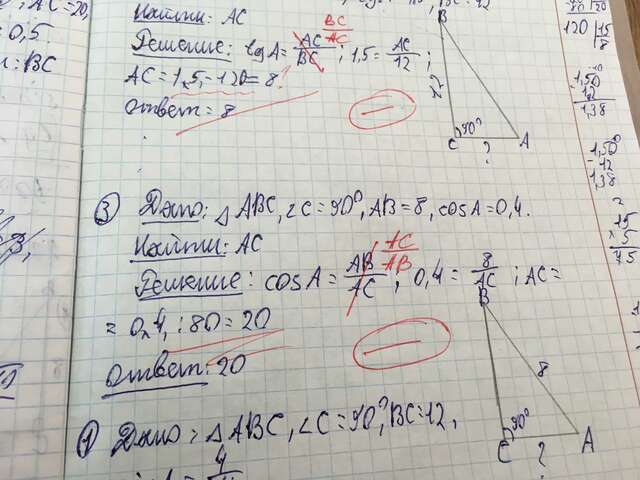 Найти: AC
Решение: tgA = AC/BC BC/AC ; 1,5 = AC/12 ;
AC = 1,5 = 120 = 8 ?
Ответ = 8
B
12
C 90° A
?
120 15
8
1,50
12
1,38
1,50
12
1,38
15
× 5
75
AC = 20,
= 0,5.
: BC
③ Дано: △ABC, ∠C = 90°, AB = 8, cosA = 0,4.
Найти: AC
Решение: cosA = AB/AC AC/AB , 0,4 = 8/AC ; AC =
= 0,4, : 80 = 20
Ответ: 20
B
8
C 90° A
?
① Дано: △ABC, ∠C = 90°, BC = 12,